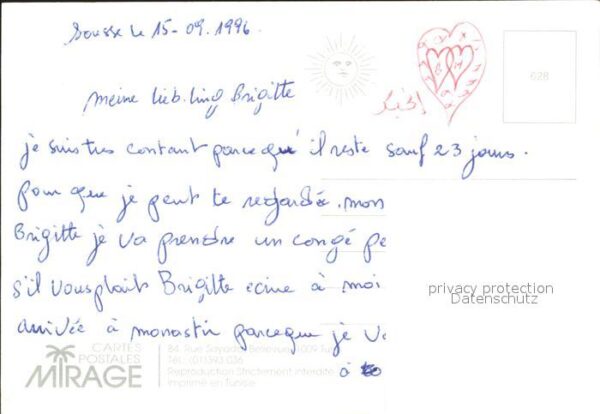 Sousse le 15-09.1996.
628
meine lieb.ling Brigitte
احبك
je suis tres contant parcequ' il reste sauf 23 jours.
pour que je peut te regardée. mon
Brigitte je va prendre un congé pe
s'il vousplait Brigitte ecrire à moi
privacy protection
Datenschutz
arrivée à monastir parceque je va
CARTES
POSTALES
MIRAGE
84, Rue Sayada 1009 Tu
Tél.: (01)393 036
Reproduction Strictement interdite
Imprimé en Tunisie
à